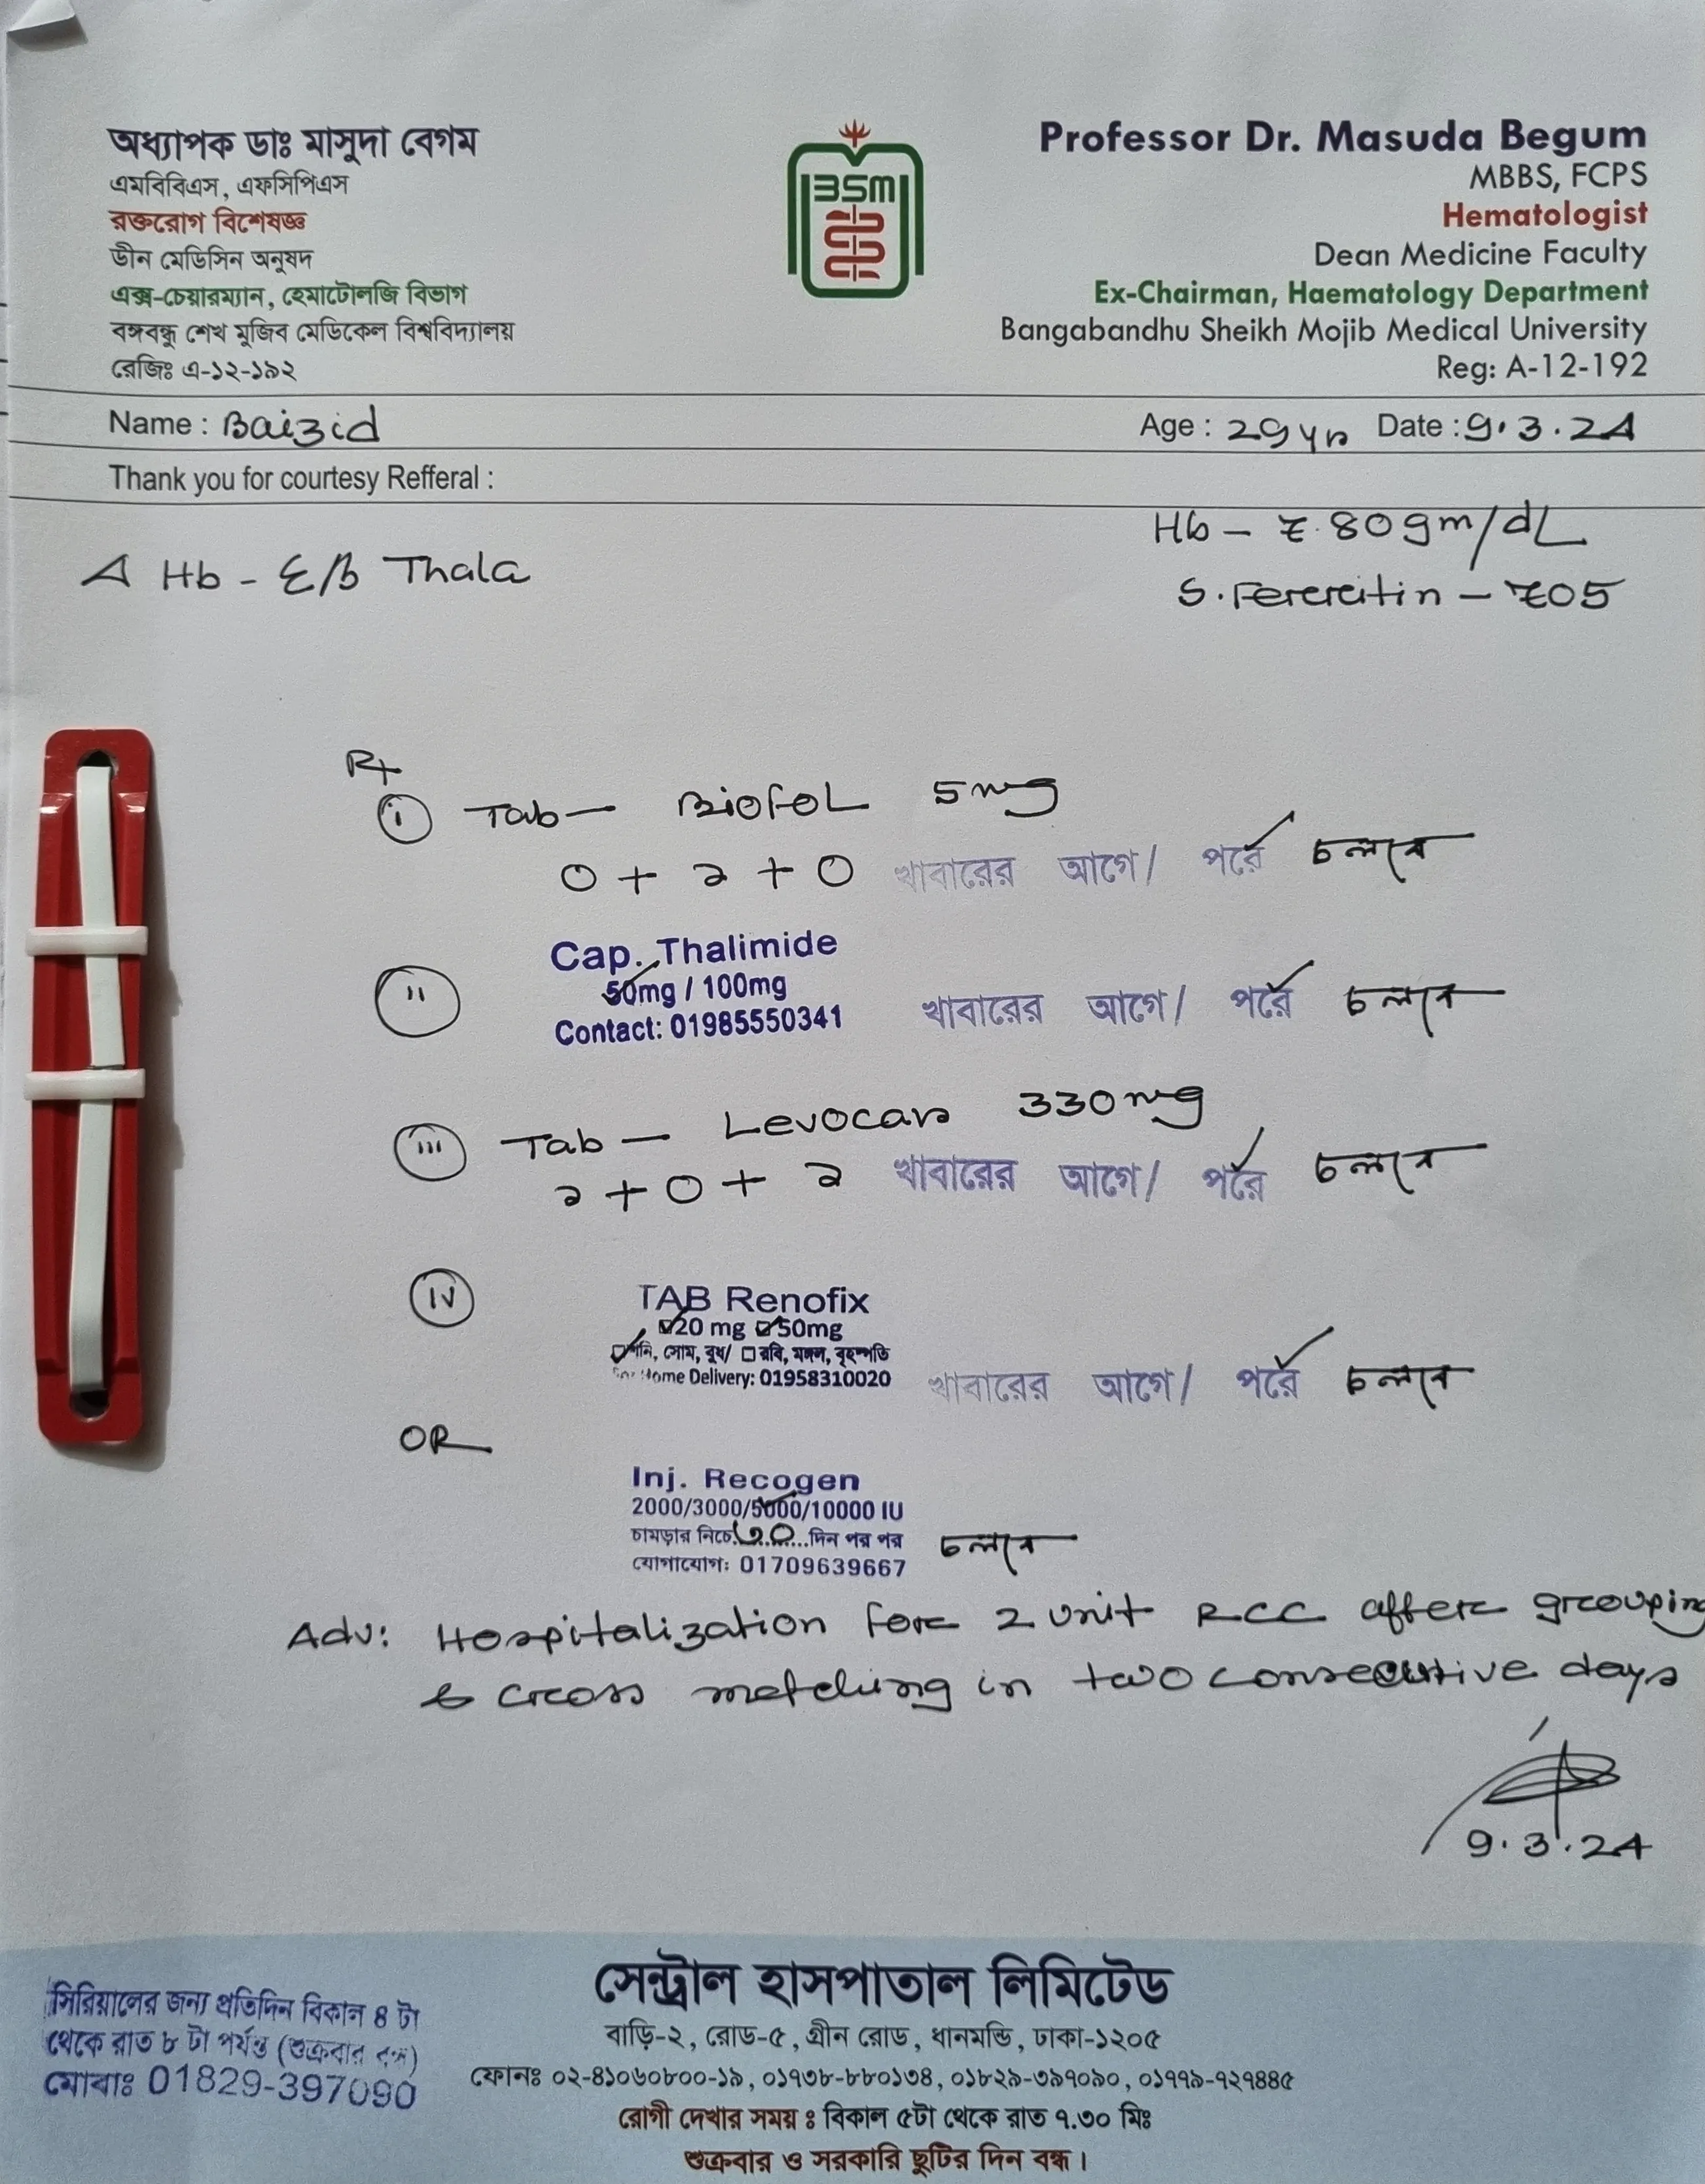 অধ্যাপক ডাঃ মাসুদা বেগম
এমবিবিএস, এফসিপিএস
রক্তরোগ বিশেষজ্ঞ
ডীন মেডিসিন অনুষদ
এক্স-চেয়ারম্যান, হেমাটোলজি বিভাগ
বঙ্গবন্ধু শেখ মুজিব মেডিকেল বিশ্ববিদ্যালয়
রেজিঃ এ-১২-১৯২
BSM
Professor Dr. Masuda Begum
MBBS, FCPS
Hematologist
Dean Medicine Faculty
Ex-Chairman, Haematology Department
Bangabandhu Sheikh Mojib Medical University
Reg: A-12-192
Name : Baizid Age : 29 yrs Date : 9.3.24
Thank you for courtesy Refferal :
Hb - 7.80 gm/dL
S. Ferritin - 705
Δ Hb - E/B Thala
Rx
i Tab - Biofol 5mg
0 + ১ + 0 খাবারের আগে / পরে চলবে
ii Cap. Thalimide
50mg / 100mg
Contact: 01985550341
খাবারের আগে / পরে চলবে
iii Tab - Levocar 330mg
১ + 0 + ১ খাবারের আগে / পরে চলবে
iv TAB Renofix
20 mg 50mg
শনি, সোম, বুধ/ রবি, মঙ্গল, বৃহস্পতি
For Home Delivery: 01958310020
খাবারের আগে / পরে চলবে
OR
Inj. Recogen
2000/3000/5000/10000 IU
চামড়ার নিচে ৩০ দিন পর পর চলবে
যোগাযোগ: 01709639667
Adv: Hospitalization for 2 unit RCC after grouping
& cross matching in two consecutive days
9.3.24
সিরিয়ালের জন্য প্রতিদিন বিকাল ৪ টা
থেকে রাত ৮ টা পর্যন্ত (শুক্রবার বন্ধ)
মোবাঃ 01829-397090
সেন্ট্রাল হাসপাতাল লিমিটেড
বাড়ি-২, রোড-৫, গ্রীন রোড, ধানমন্ডি, ঢাকা-১২০৫
ফোনঃ ০২-৪১০৬০৮০০-১৯, ০১৭৩৮-৮৮০১৩৪, ০১৮২৯-৩৯৭০৯০, ০১৭৭৯-৭২৭৪৪৫
রোগী দেখার সময় ঃ বিকাল ৫টা থেকে রাত ৭.৩০ মিঃ
শুক্রবার ও সরকারি ছুটির দিন বন্ধ।